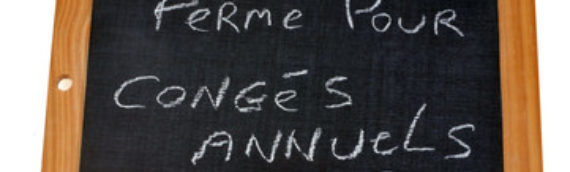 FeRMe POUR
CONGéS
ANNUeLS